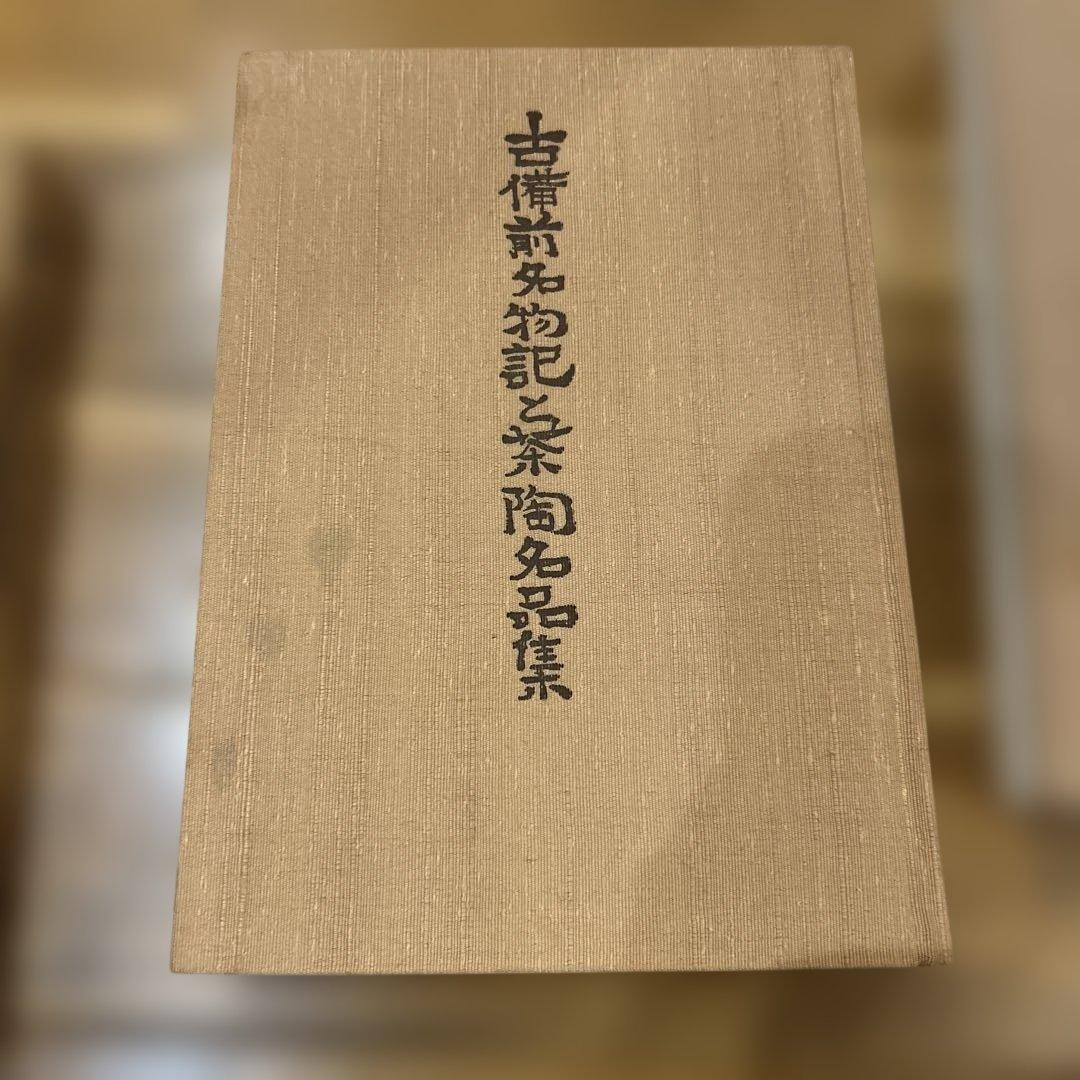 古備前名物記と茶陶名品集